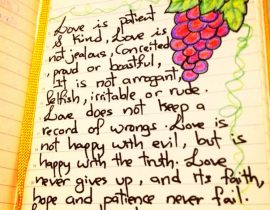 Love is patient
& kind, Love is
not jealous, Conceited
proud or boastful,
It is not arrogant,
selfish, irritable or rude.
Love does not keep a
record of wrongs. Love is
not happy with evil, but is
happy with the truth. Love
never gives up, and its faith,
hope and patience never fail.